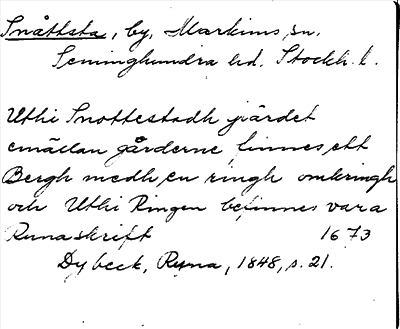 Snåttsta, by, Markims sn.
Seminghundra hd. Stockh. l.
Uthi Snottestadh järdet
emällan gårderne, finnes ett
Bergh medh en ringh omkringh
och Uthi Ringen befinnes vara
Runaskrift 1673
Dybeck, Runa, 1848, s. 21.